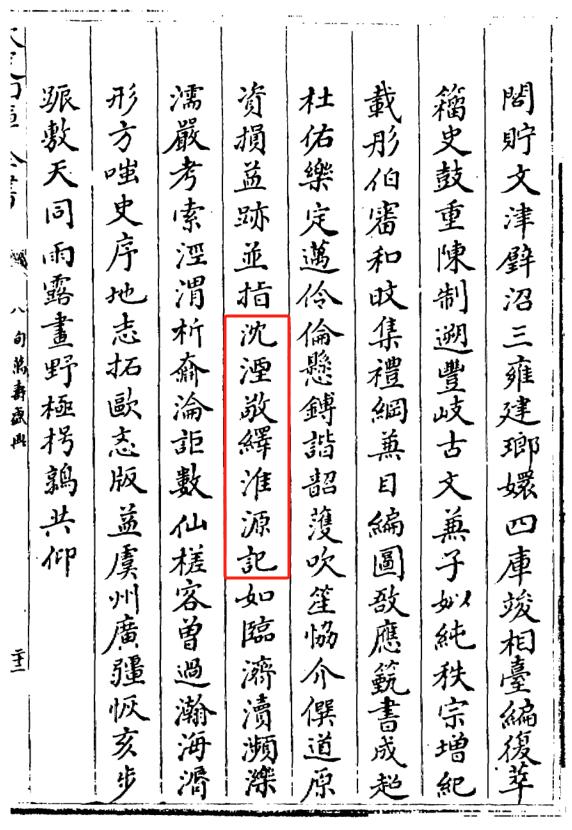 閣貯文津璧沼三雍建瑯嬛四庫竣相臺編復萃
籀史鼓重陳制遡豐岐古文兼子姒純秩宗增紀
載彤伯審和旼集禮綱兼目編圖敔應籈書成超
杜佑樂定邁伶倫懸鎛諧韶頀吹笙恊介僎道原
資損益跡並指沈湮敬繹淮源記如臨濟瀆瀕濼
濡嚴考索涇渭析淪詎數仙槎容曾過瀚海濳
形方史序地志拓歐志版益虞州廣疆恢亥步
敷天同雨露畫野極枵鶉共仰
八旬萬壽盛典